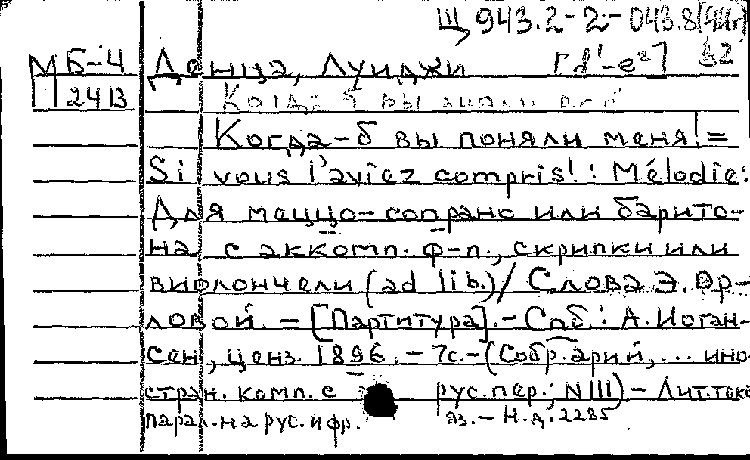 Щ 943.2-2-043.8(4Ит)
М Б-4 Денца, Луиджи [d¹-e²] 32
П 2413
Когда-б вы поняли меня! =
Si vous l'aviez compris! : Mélodie:
Для меццо-сопрано или барито-
на с аккомп. ф-п., скрипки или
виолончели (ad lib.) / Слова Э. Ор-
ловой. – [Партитура]. – Спб.: А. Иоган-
сен, ценз. 1896. – 7с. – (Собр. арий, ... ино-
стран. комп. с рус. пер.; N III) – Лит. текст
парал. на рус. и фр. яз. – Н.д.: 2285